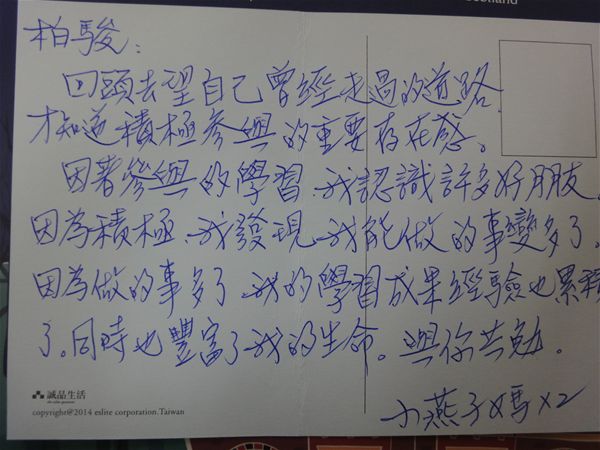 柏駿：
回頭去望自己曾經走過的道路
才知道積極參與的重要存在感。
因著參與的學習，我認識許多好朋友
因為積極，我發現我能做的事變多了。
因為做的事多了，我的學習成果經驗也累積
了。同時也豐富了我的生命。與你共勉。
小燕子媽x2
誠品生活
copyright@2014 eslite corporation.Taiwan